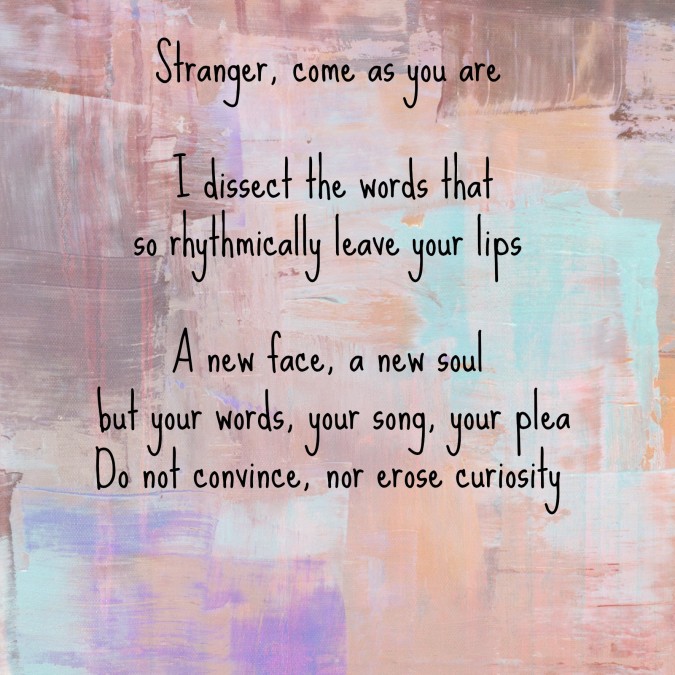 Stranger, come as you are
I dissect the words that
so rhythmically leave your lips
A new face, a new soul
but your words, your song, your plea
Do not convince, nor erose curiosity